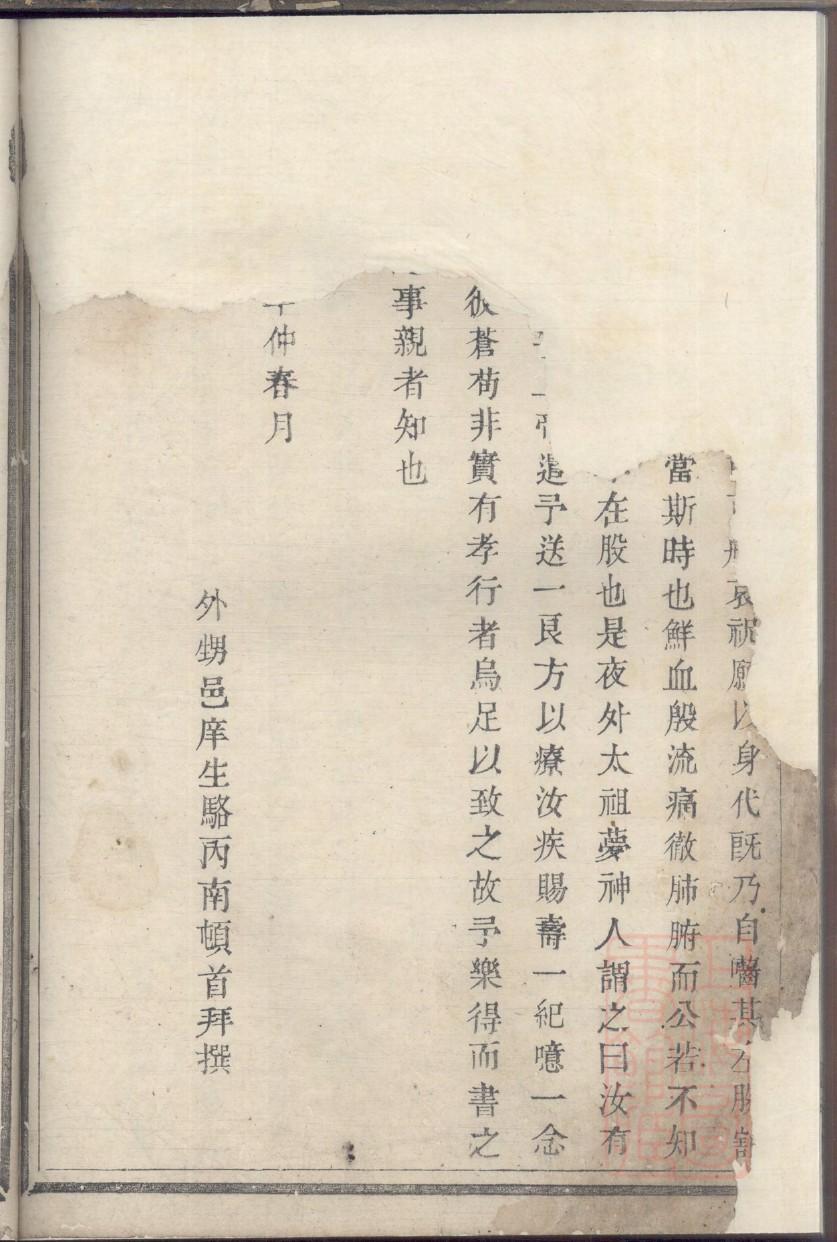 哀祝願以身代既乃自齧其左股
當斯時也鮮血殷流痛徹肺腑而公若不知
在股也是夜外太祖夢神人謂之曰汝有
遣予送一良方以療汝疾賜壽一紀噫一念
彼蒼苟非實有孝行者烏足以致之故予樂得而書之
事親者知也
仲春月
外甥邑庠生駱丙南頓首拜撰